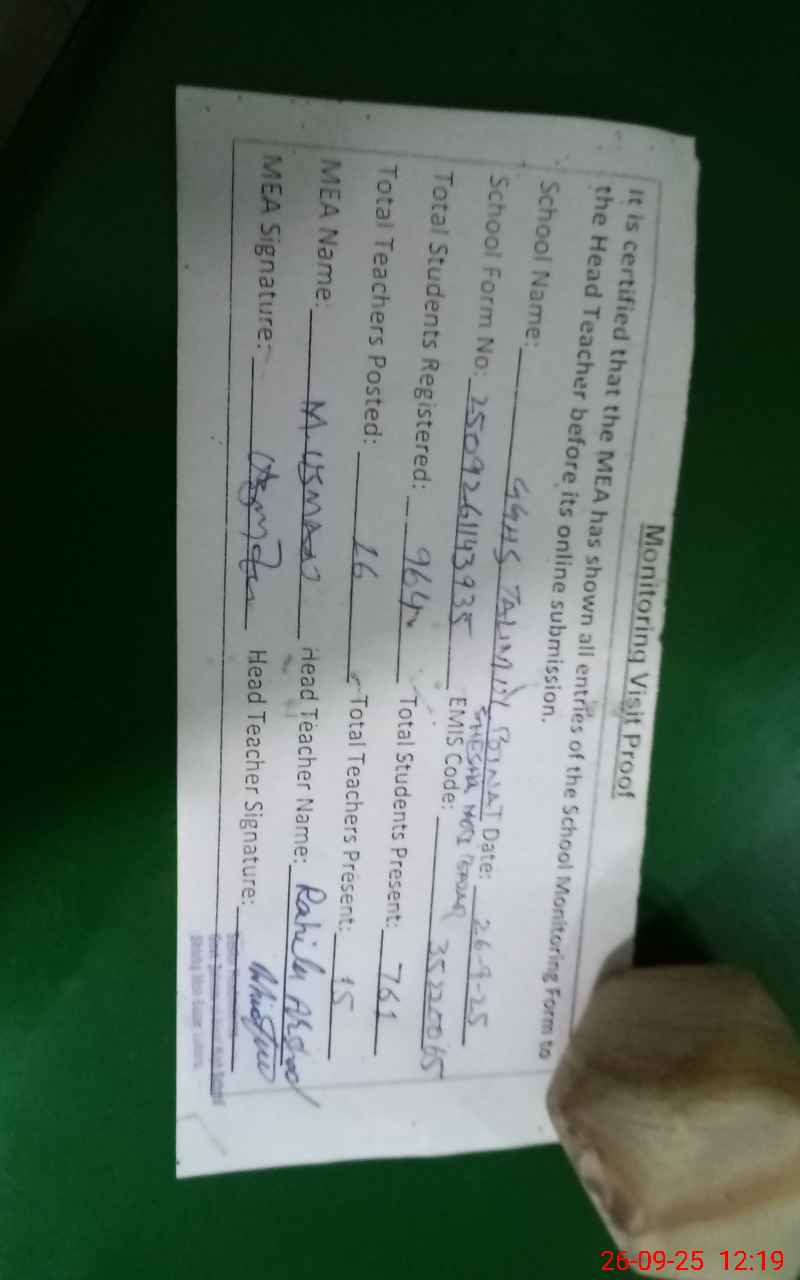 Monitoring Visit Proof
It is certified that the MEA has shown all entries of the School Monitoring Form to
the Head Teacher before its online submission.
School Name: GGHS TALIM UL BINAT Date: 26-9-25
School Form No: 250926114393 EMIS Code: 35220065
Total Students Registered: 964 Total Students Present: 761
Total Teachers Posted: 16 Total Teachers Present: 15
MEA Name: M. USMAN Head Teacher Name: Rahila Arshad
MEA Signature: Head Teacher Signature:
26-09-25 12:19